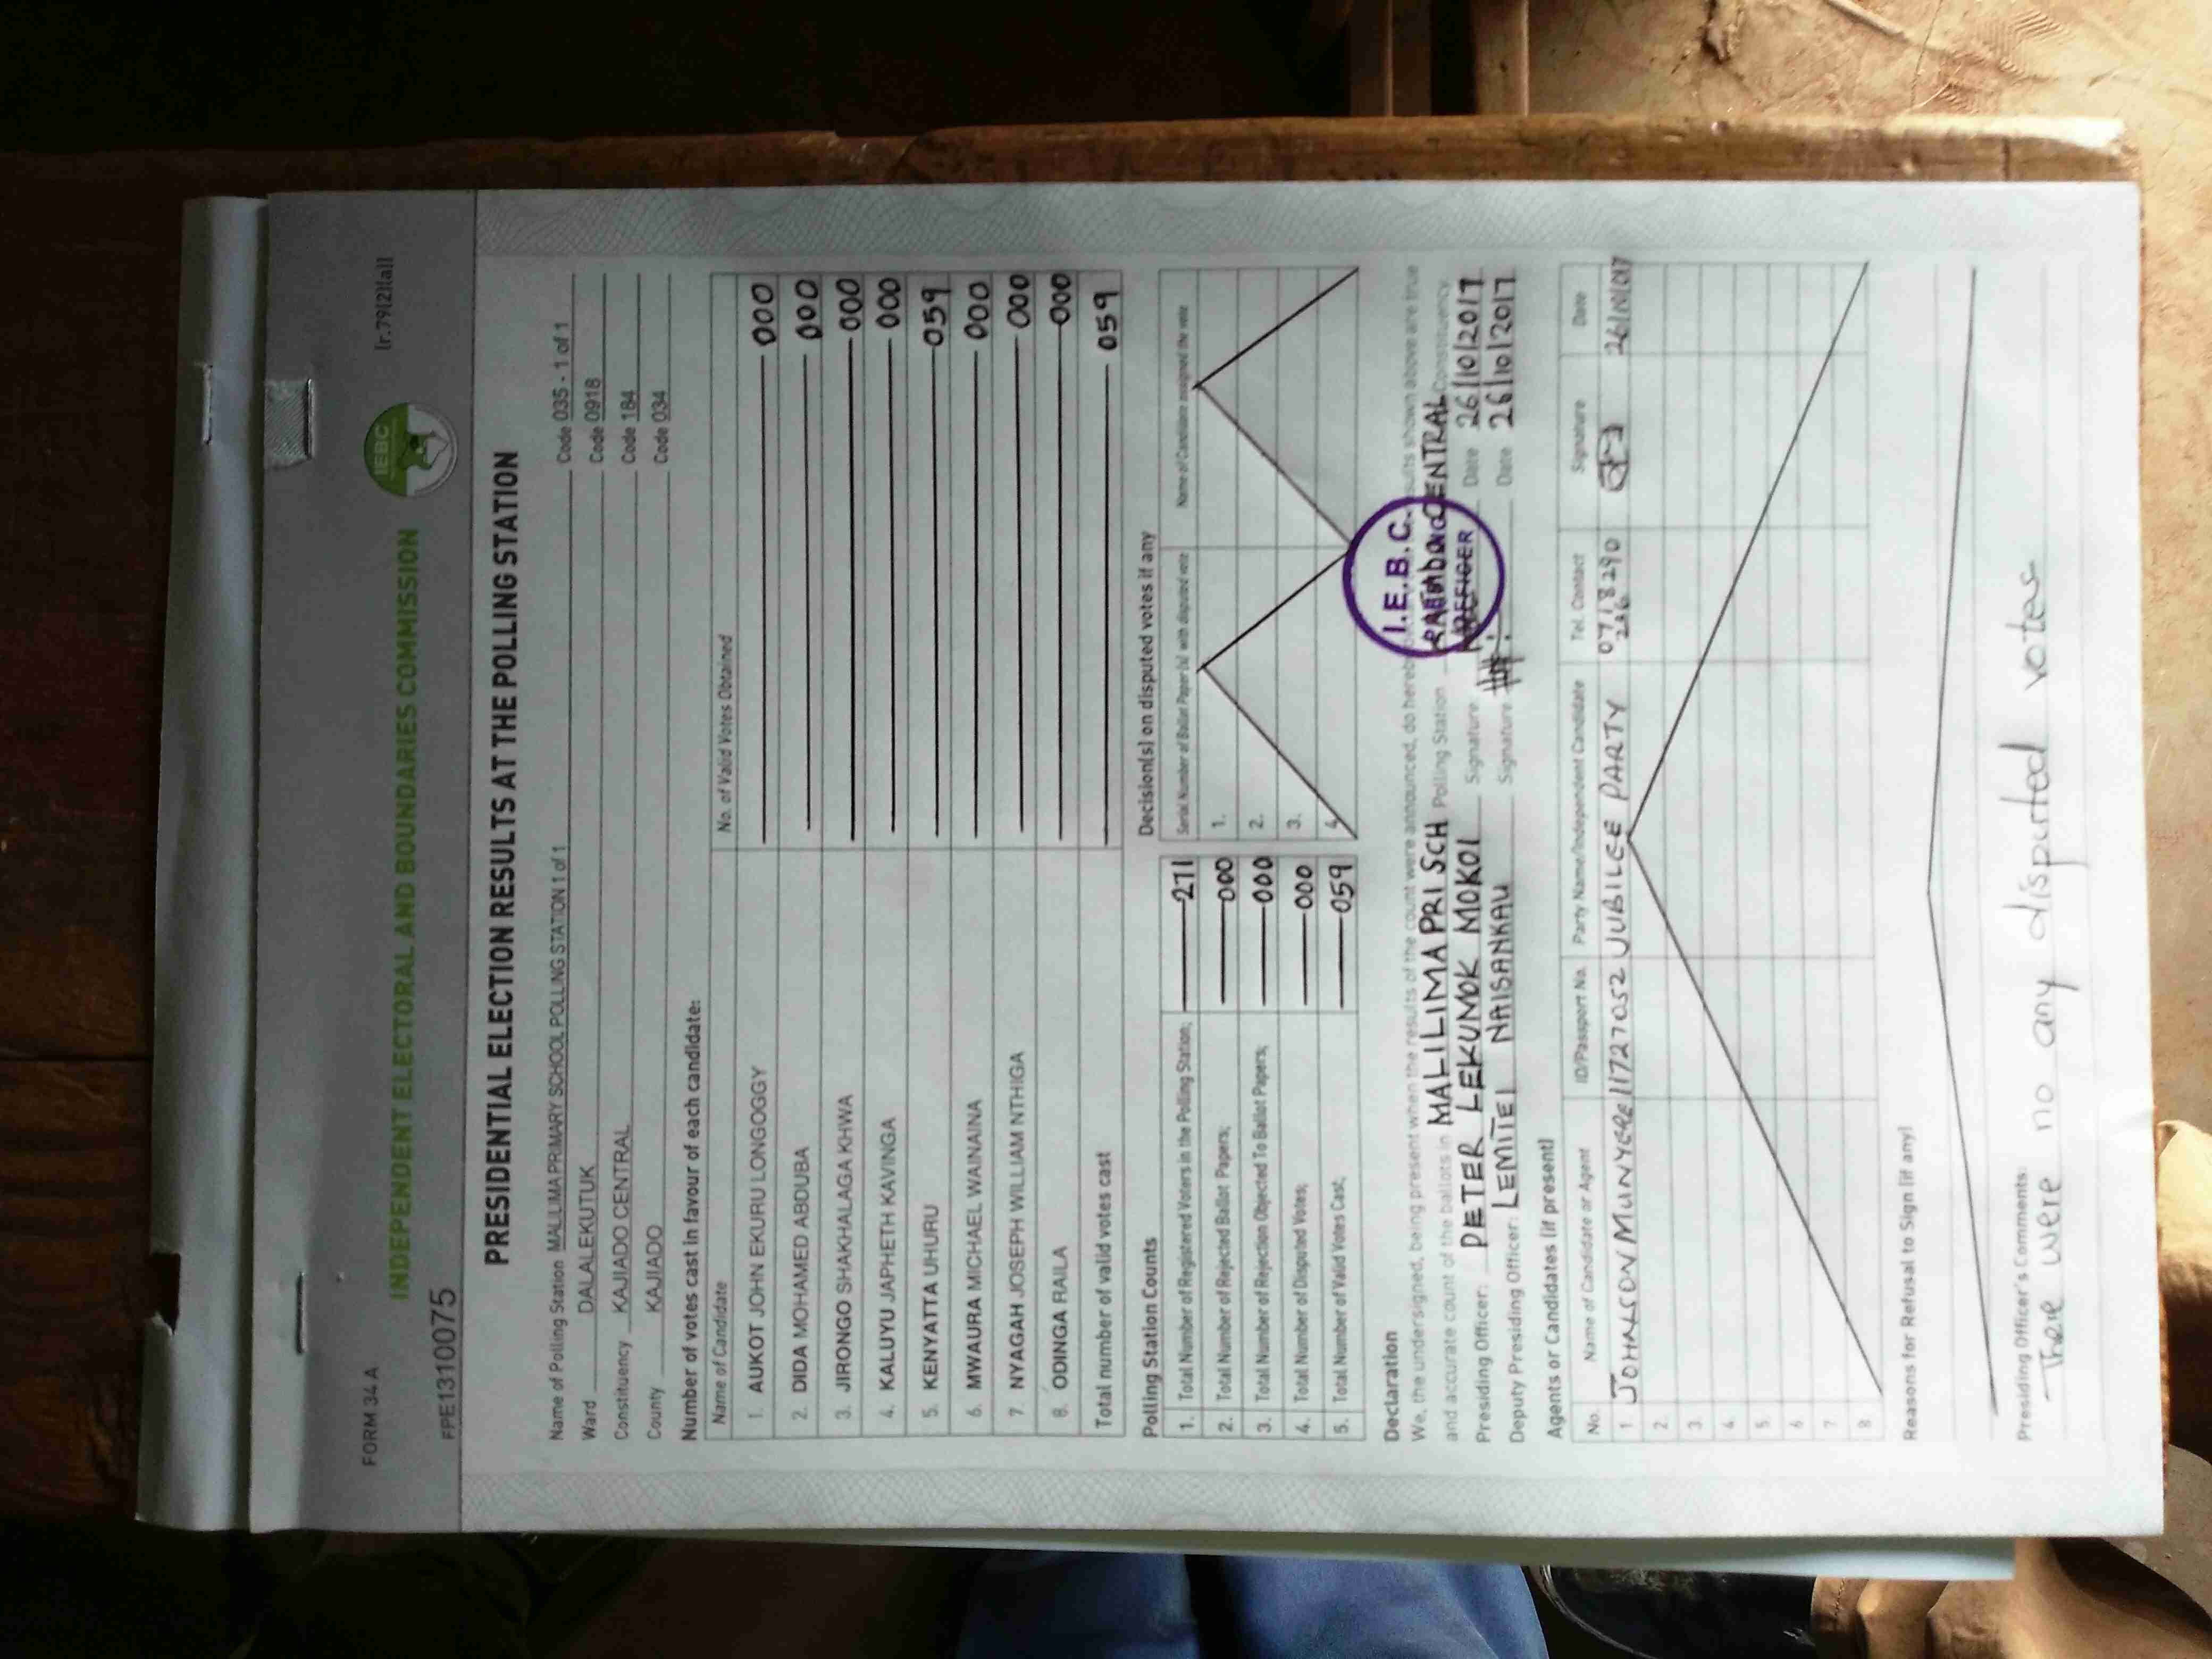 FORM 34 A
[r.79(2)(a)]
INDEPENDENT ELECTORAL AND BOUNDARIES COMMISSION
IEBC
FPE1310075
PRESIDENTIAL ELECTION RESULTS AT THE POLLING STATION
Name of Polling Station MALLIMA PRIMARY SCHOOL POLLING STATION 1 of 1 Code 035 - 1 of 1
Ward DALALEKUTUK Code 0918
Constituency KAJIADO CENTRAL Code 184
County KAJIADO Code 034
Number of votes cast in favour of each candidate:
Name of Candidate No. of Valid Votes Obtained
1. AUKOT JOHN EKURU LONGOGGY 000
2. DIDA MOHAMED ABDUBA 000
3. JIRONGO SHAKHALAGA KHWA 000
4. KALUYU JAPHETH KAVINGA 000
5. KENYATTA UHURU 059
6. MWAURA MICHAEL WAINAINA 000
7. NYAGAH JOSEPH WILLIAM NTHIGA 000
8. ODINGA RAILA 000
Total number of valid votes cast 059
Polling Station Counts
1. Total Number of Registered Voters in the Polling Station; 271
2. Total Number of Rejected Ballot Papers; 000
3. Total Number of Rejection Objected To Ballot Papers; 000
4. Total Number of Disputed Votes; 000
5. Total Number of Valid Votes Cast; 059
Decision(s) on disputed votes if any
Serial Number of Ballot Paper(s) with disputed vote Name of Candidate assigned the vote
1.
2.
3.
4.
Declaration
We, the undersigned, being present when the results of the count were announced, do hereby results shown above are true
and accurate count of the ballots in MALILIMA PRI SCH Polling Station CENTRAL Constituency
Presiding Officer: PETER LEKUMOK MOKOI Signature Date 26/10/2017
Deputy Presiding Officer: LEMITEI NAISANKAU Signature Date 26/10/2017
I.E.B.C.
OFFICER
Agents or Candidates (if present)
No. Name of Candidate or Agent ID/Passport No. Party Name/Independent Candidate Tel. Contact Signature Date
1. JOHNSON 11727052 JUBILEE PARTY 0718290 26/10/017
2
3.
4
5
6
7
8
Reasons for Refusal to Sign (if any)
Presiding Officer's Comments:
There were no any disputed votes